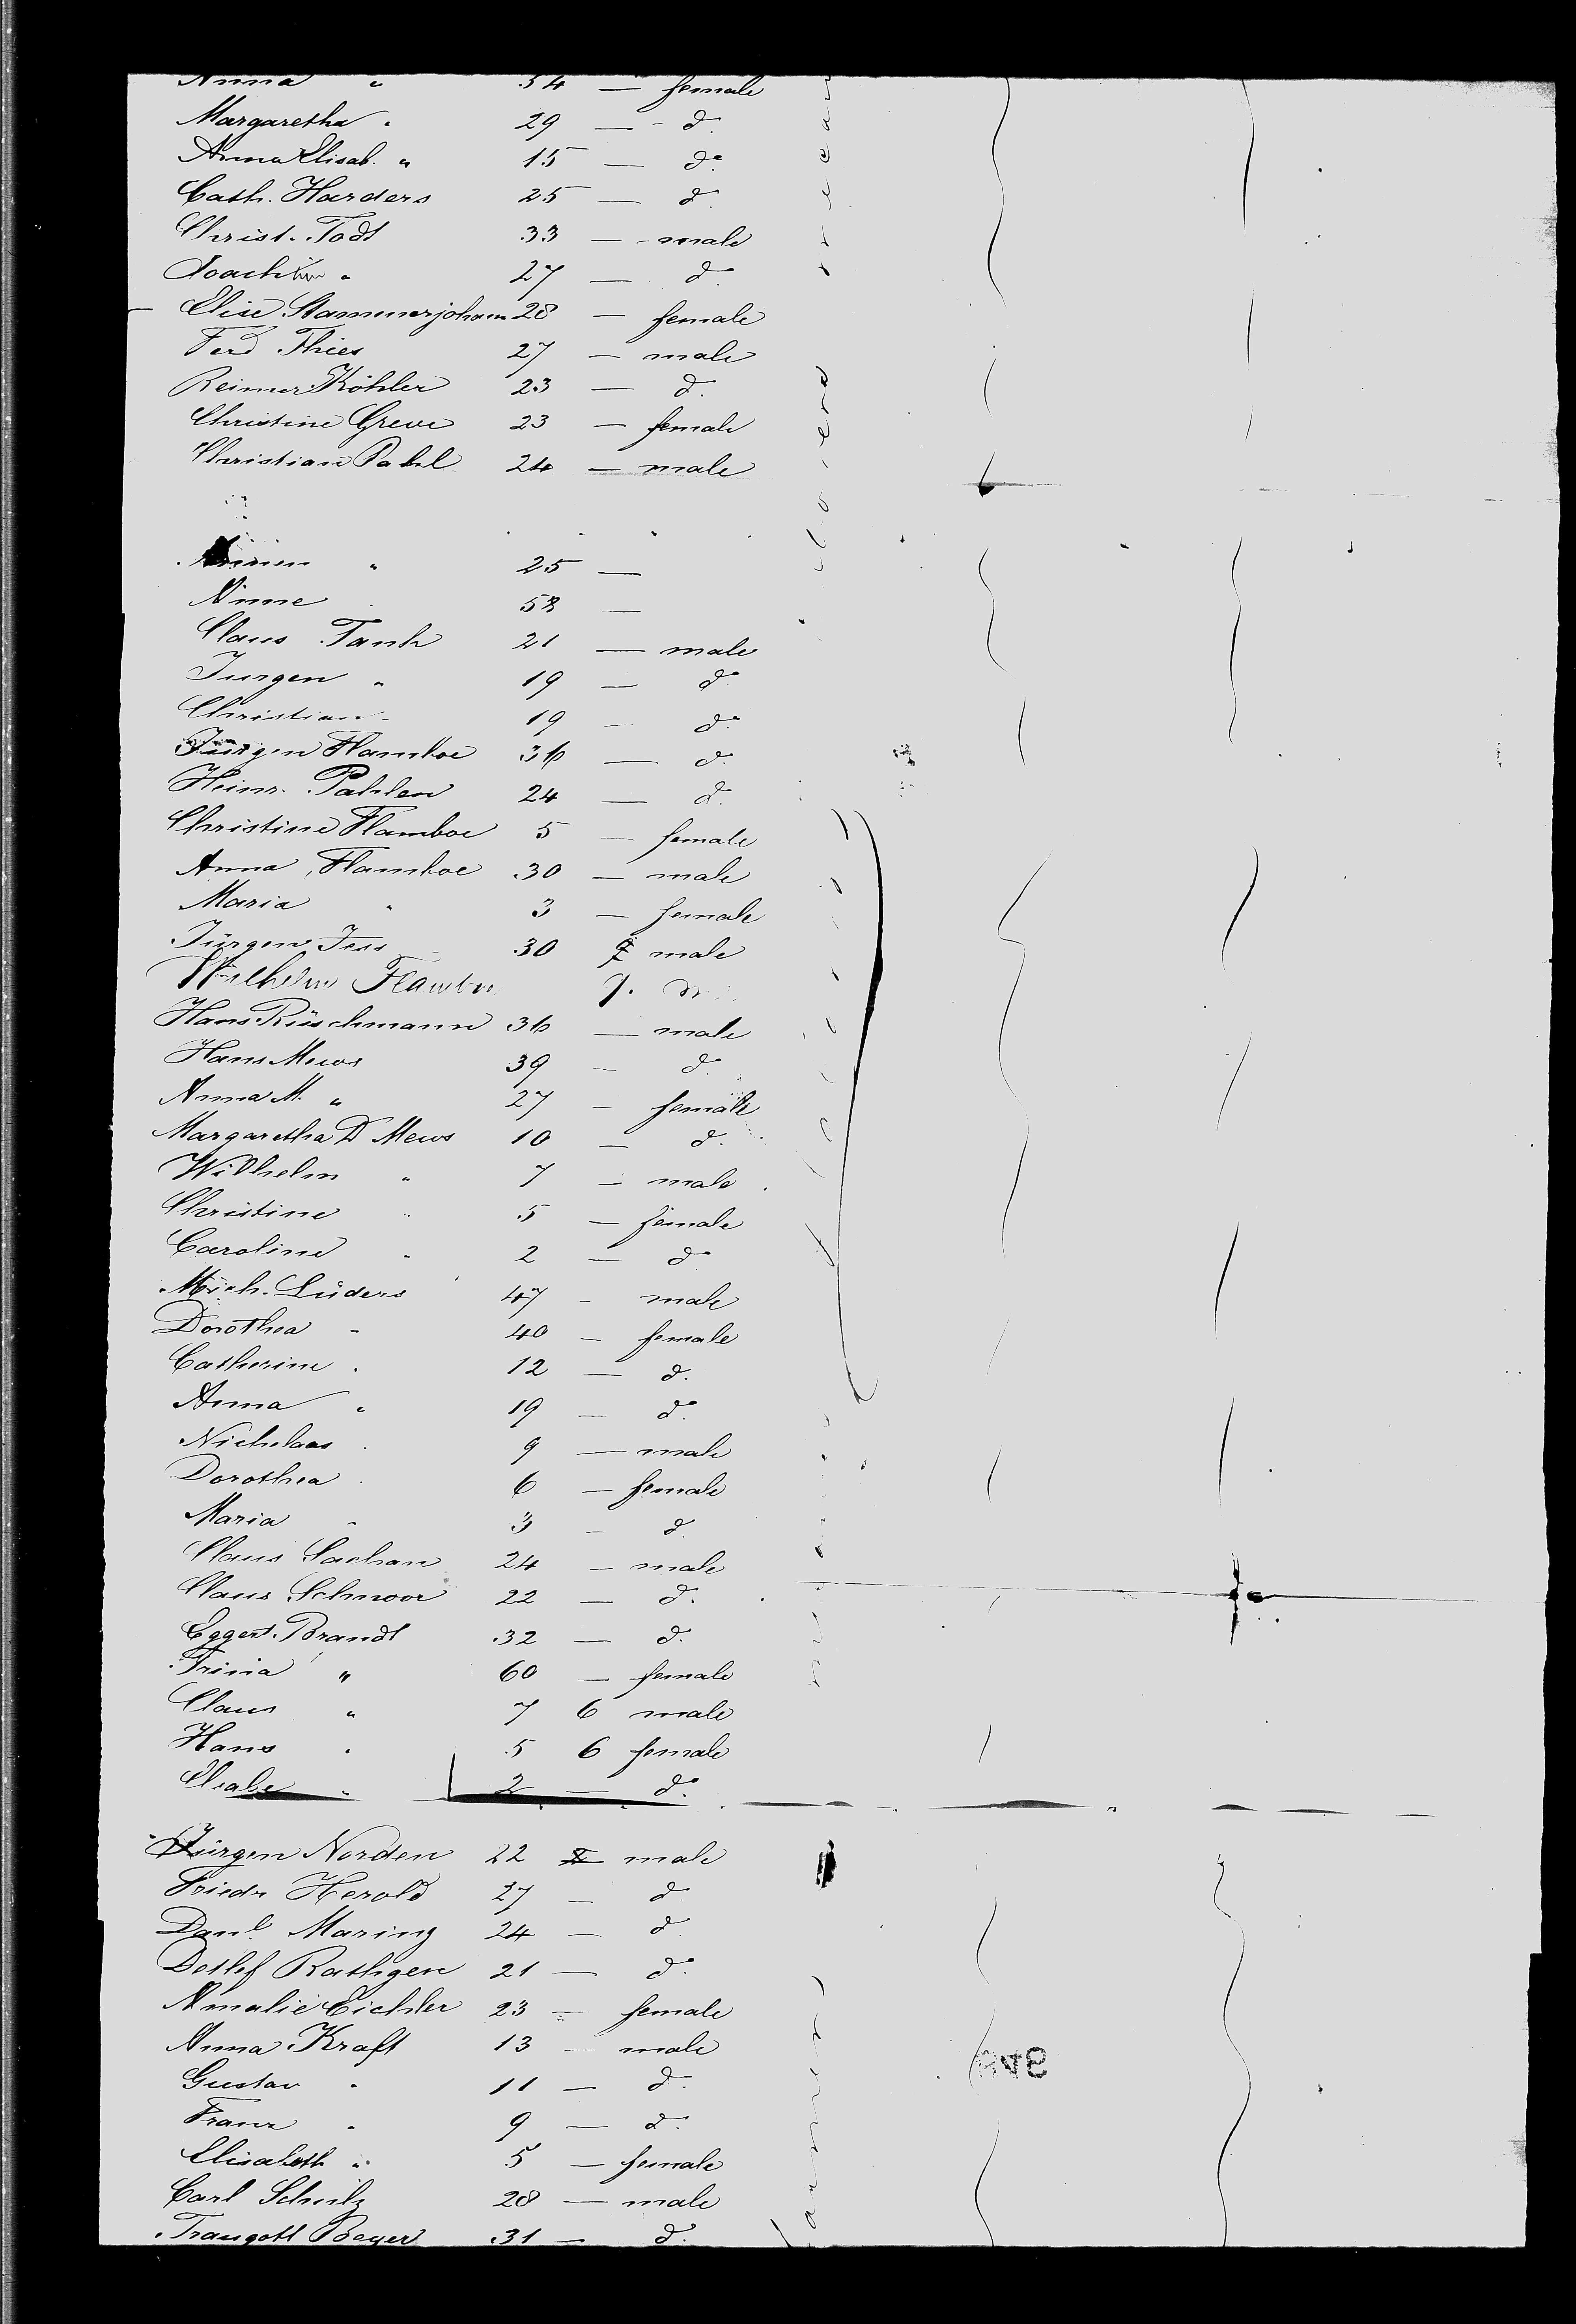 Anna " 54 — female
Margaretha " 29 — do.
Anna Elisab. " 15 — do.
Cath. Harders 25 — do.
Christ. Todt 33 — male
Joachim " 27 — do.
Elise Stammerjohann 28 — female
Ferd Thies 27 — male
Reimer Köhler 23 — do.
Christine Greve 23 — female
Christian Pahl 24 — male
" 25 —
58 —
Claus Tank 21 — male
Jurgen " 19 — do.
Christian " 19 — do.
Jürgen Flamboe 36 — do.
Heinr. Pahlen 24 — do.
Christine Flamboe 5 — female
Anna Flamboe 30 — male
Maria " 3 — female
Jürgen Jess 30 male
Wilhelm
Hans Rüschmann 36 — male
Hans Mews 39 — do.
Anna M. " 27 — female
Margaretha D Mews 10 — do.
Wilhelm " 7 — male
Christine " 5 — female
Caroline " 2 — do.
Mich. Lüders 47 — male
Dorothea " 40 — female
Catherine " 12 — do.
Anna " 19 — do.
Nicholaas " 9 — male
Dorothea " 6 — female
Maria " 3 — do.
Claus 24 — male
Claus Schnoor 22 — do.
Eggert Brandt 32 — do.
Trina " 60 — female
Claus " 7 6 male
Hans " 5 6 female
Elsabe " 2 — do.
Jürgen Norden 22 male
Friedr Herold 27 — do.
Danl. Maring 24 — do.
Detlef Rathgen 21 — do.
Amalie Eichler 23 — female
Anna Kraft 13 — male
Gustav " 11 — do.
Franz " 9 — do.
Elisabeth " 5 — female
Carl Schulz 28 — male
Traugott Beyer 31 — do.